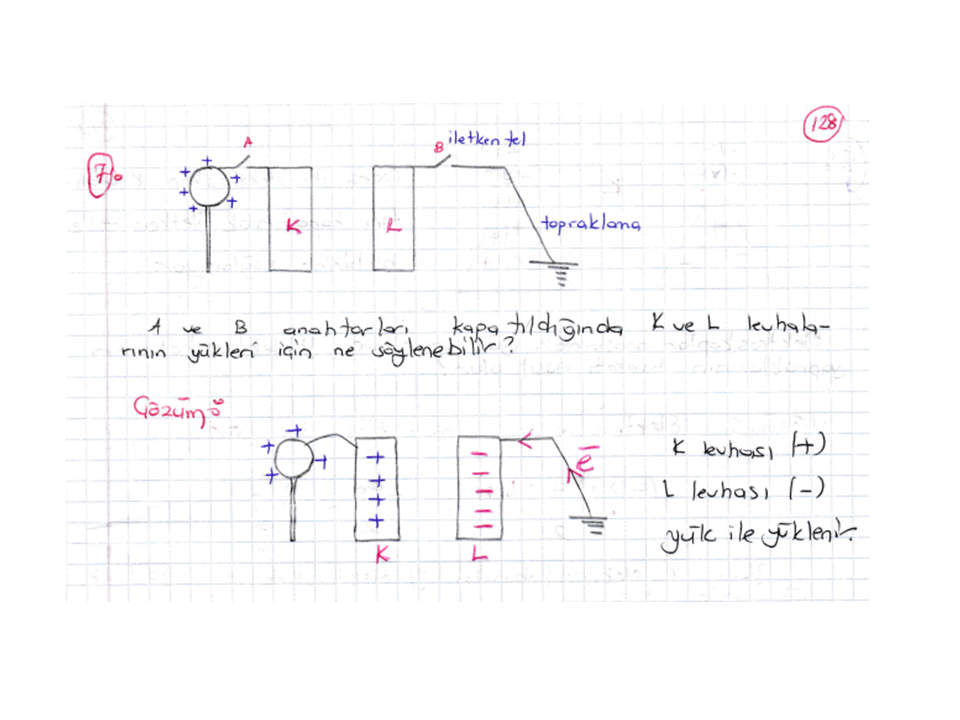 128
7.
A
B iletken tel
K
L
topraklama
A ve B anahtarları kapatıldığında K ve L levhala-
rının yükleri için ne söylenebilir?
Çözüm:
K levhası (+)
e⁻
L levhası (-)
yük ile yüklenir.
K
L